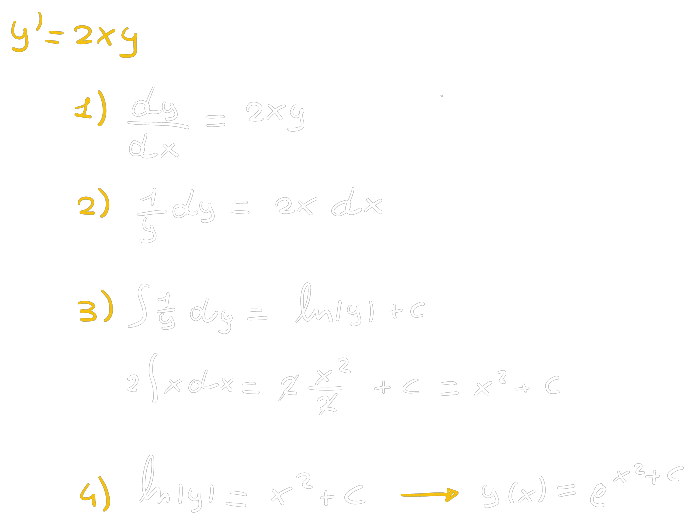 y' = 2xy
1) dy/dx = 2xy
2) 1/y dy = 2x dx
3) ∫ 1/y dy = ln|y| + c
2 ∫ x dx = 2 x²/2 + c = x² + c
4) ln|y| = x² + c → y(x) = e^(x²+c)